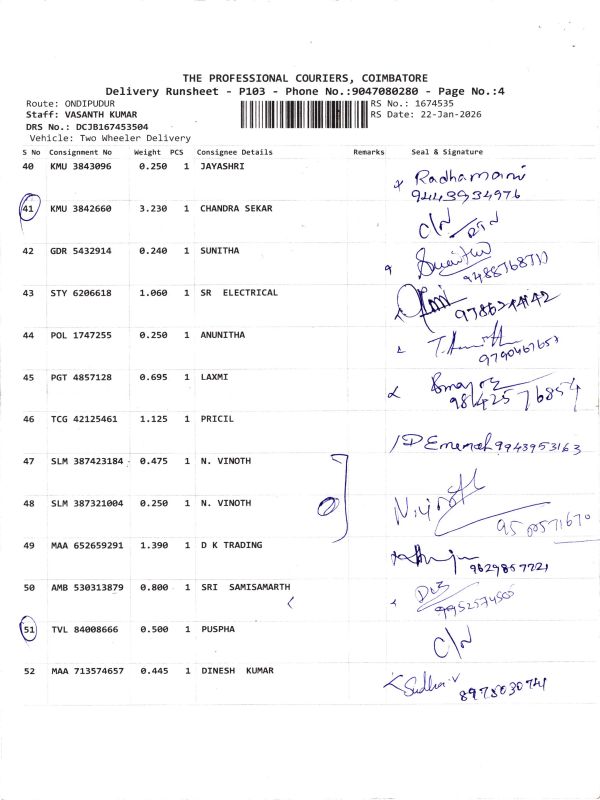 THE PROFESSIONAL COURIERS, COIMBATORE
Delivery Runsheet - P103 - Phone No.:9047080280 - Page No.:4
Route: ONDIPUDUR RS No.: 1674535
Staff: VASANTH KUMAR RS Date: 22-Jan-2026
DRS No.: DCJB167453504
Vehicle: Two Wheeler Delivery
S No Consignment No Weight PCS Consignee Details Remarks Seal & Signature
40 KMU 3843096 0.250 1 JAYASHRI Radhamani
9443934976
41 KMU 3842660 3.230 1 CHANDRA SEKAR C/N
42 GDR 5432914 0.240 1 SUNITHA Sunitha
9488768711
43 STY 6206618 1.060 1 SR ELECTRICAL
44 POL 1747255 0.250 1 ANUNITHA
9790467657
45 PGT 4857128 0.695 1 LAXMI
9842576854
46 TCG 42125461 1.125 1 PRICIL 9943953163
47 SLM 387423184 0.475 1 N. VINOTH
48 SLM 387321004 0.250 1 N. VINOTH N.Vinoth
9500571670
49 MAA 652659291 1.390 1 D K TRADING
9629857721
50 AMB 530313879 0.800 1 SRI SAMISAMARTH
9952574505
51 TVL 84008666 0.500 1 PUSPHA C/N
52 MAA 713574657 0.445 1 DINESH KUMAR Sudha.V
8978030741